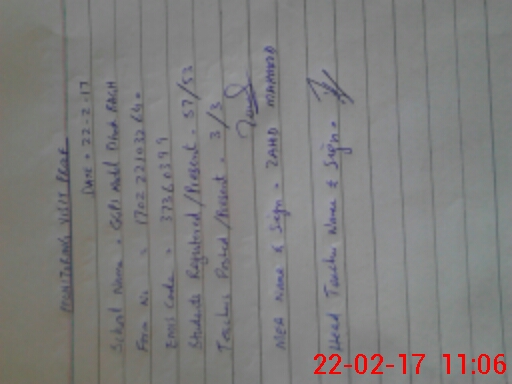 MONITORING VISIT PROF
DATE = 22-2-17
School Name =
Form No = 1702221032640
Emis Code = 37360399
Students Registered/Present = 57/53
Teachers Posted/Present = 3/3
MEA Name & Sign = ZAHID MAHMOOD
Head Teacher Name & Sign =
22-02-17 11:06